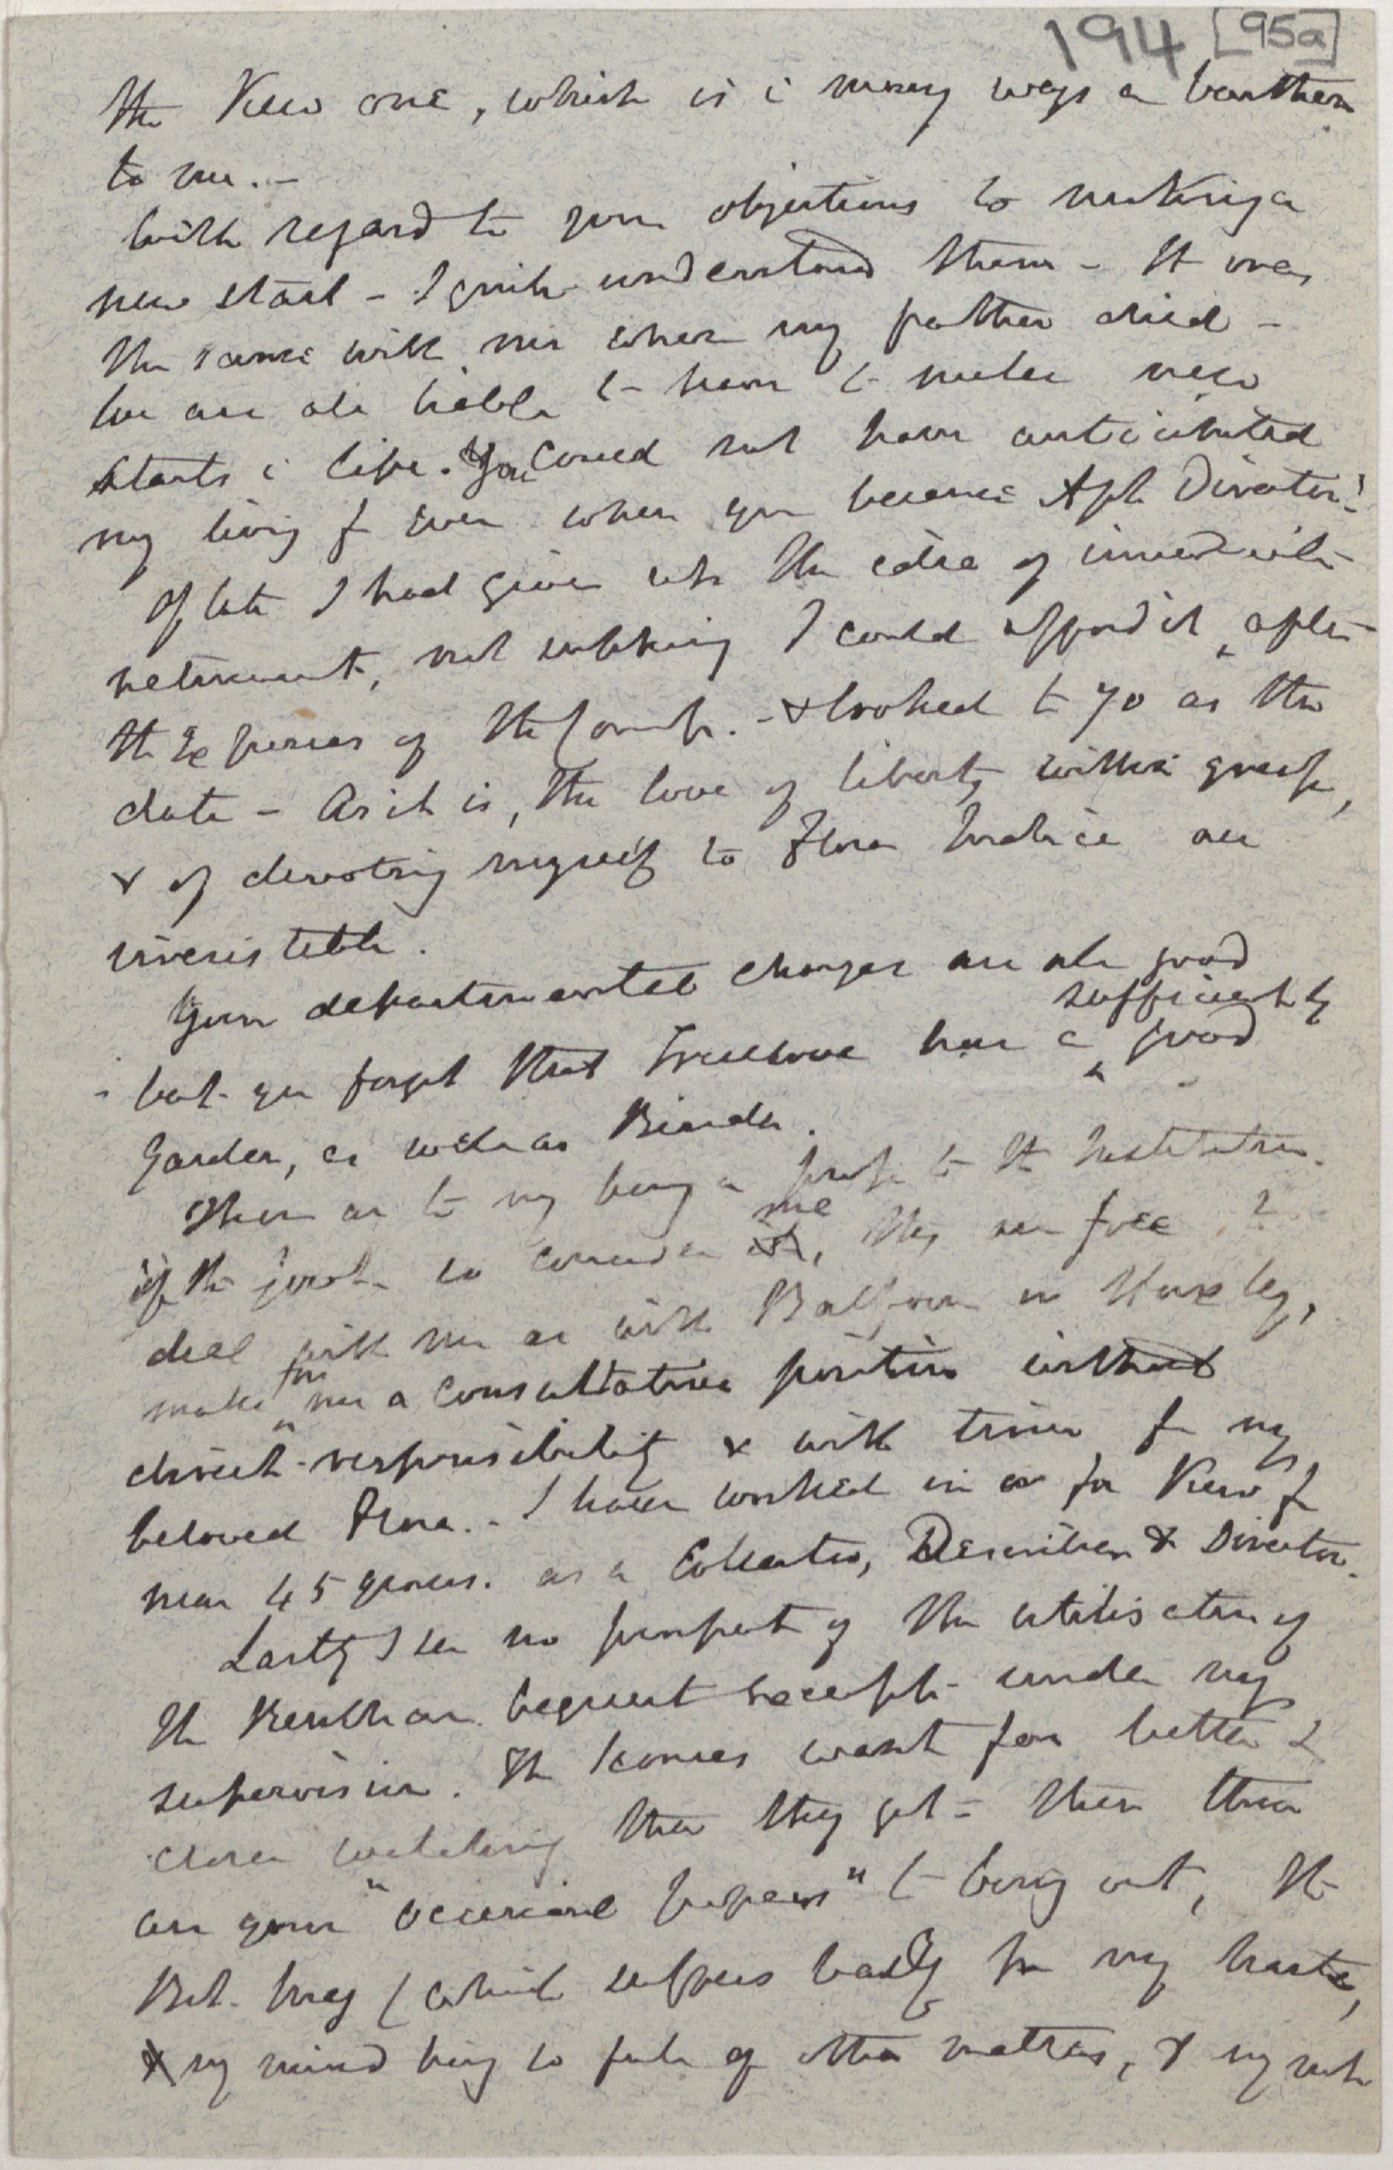 194 [95a]
the Kew one, which is i many ways a burthen
to me. –
With regard to your objections to making a
new start – I quite understand them – It was
the same with me when my father died –
We are all liable to have to make new
starts i life. You could not have anticipated
my living for ever when you became Asst Director!
Of late I had given up the idea of immediate
retirement, not supposing I could afford it, after
the expenses of the – & looked to 70 as the
date – As it is, the love of liberty within grasp,
& of devoting myself to Flora Indica are
irresistible.
Your departmental changes are all good
sufficiently
but you forget that Truelove has a good
Garden, as well as Binder.
Then as to my being a prop to the Institution.
if the Govt. so consider me, they are free to
deal with me as with Balfour or Huxley,
make for me a consultative position without
direct responsibility & with time for my
beloved Flora. – I have worked in or for Kew for
near 45 years. as a Collector, Describer & Director.
Lastly I see no prospect of the utilisation of
the Bentham bequest except under my
supervision. The Icones want far better &
closer watching than they get – then there
are your "occasional papers" to bring out, the
Bot. Mag (which suffers badly from my haste,
& my mind being so full of other matters, & my not